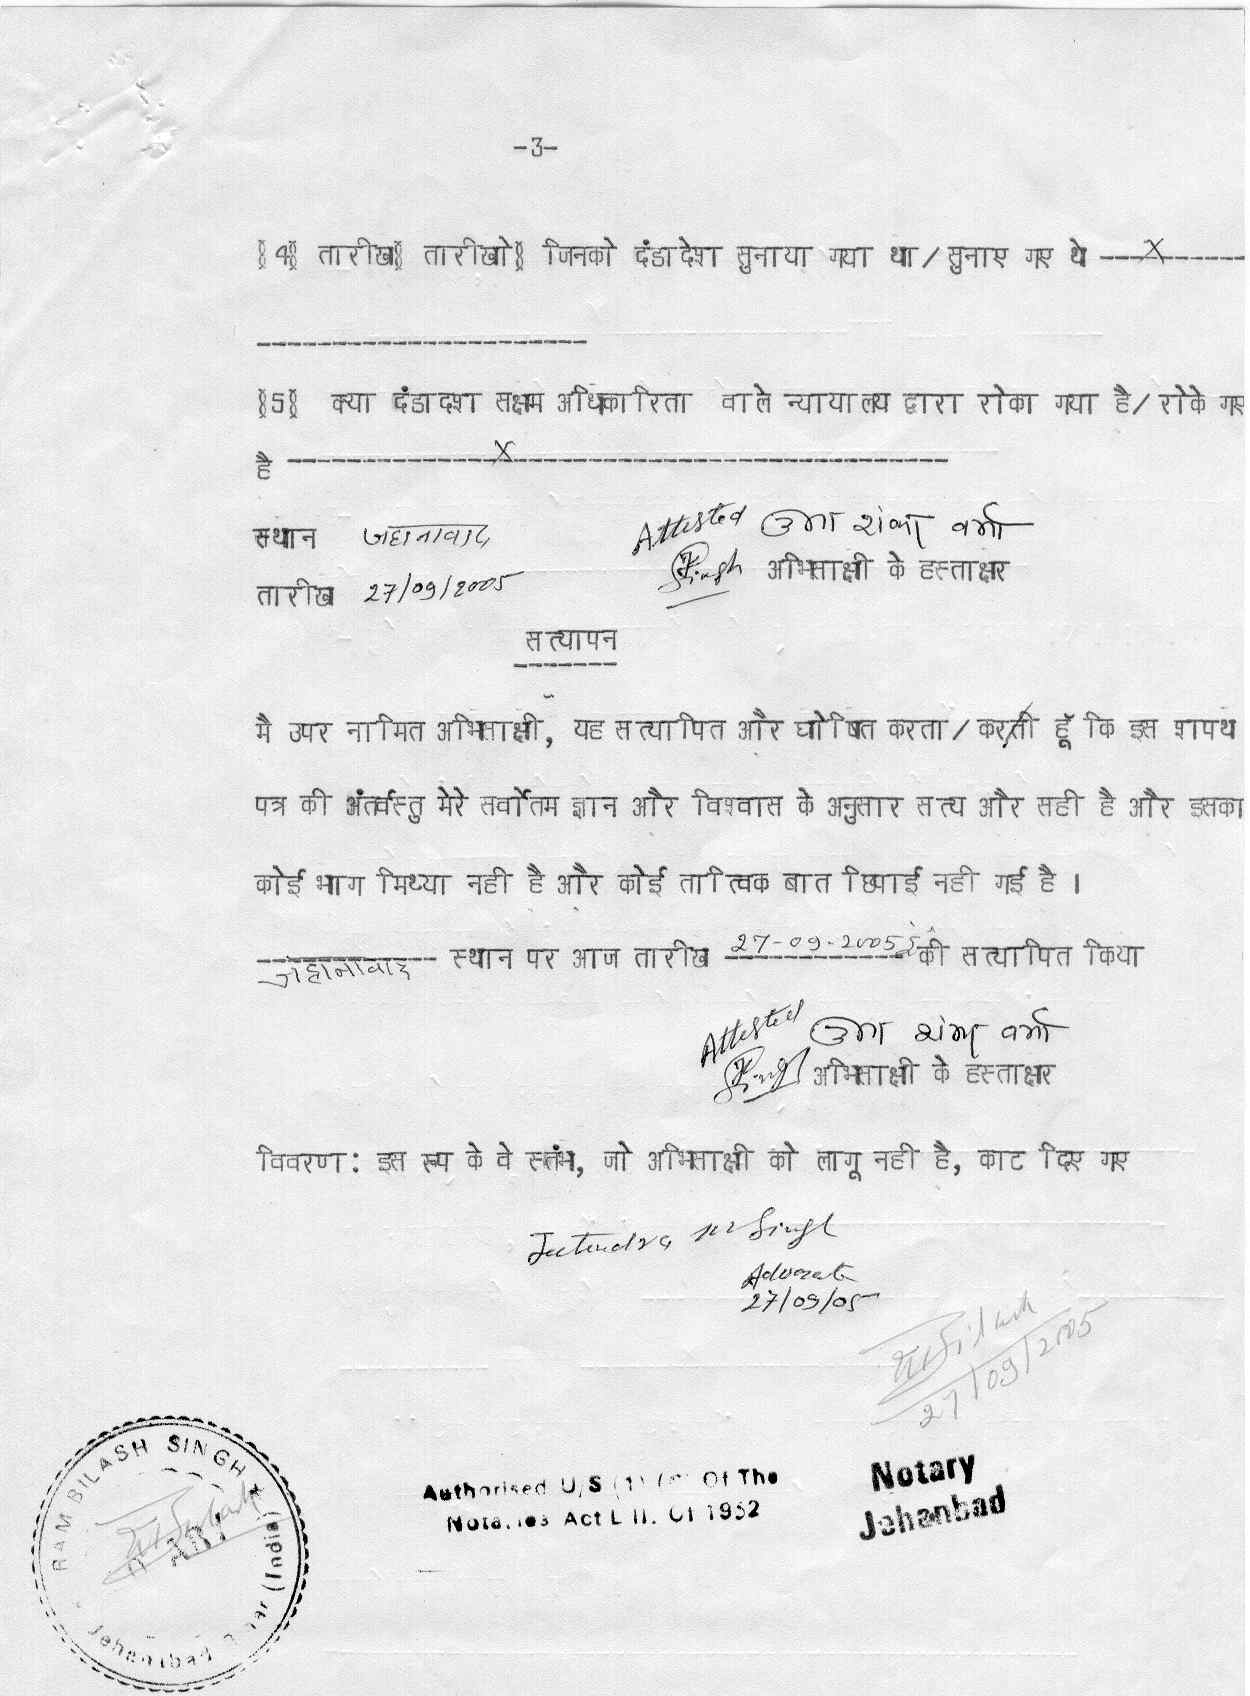 -3-
§4§ तारीख§ तारीखो§ जिनको दंडादेश सुनाया गया था/सुनाए गए थे ---X------
------------------------
§5§ क्या दंडादश सक्षम अधिकारिता वाले न्यायालय द्वारा रोका गया है/रोके गए
है ---------------X--------------------------------
स्थान जहानाबाद Attested उमा शंकर वर्मा
Singh अभिसाक्षी के हस्ताक्षर
तारीख 27/09/2005
सत्यापन
मै उपर नामित अभिसाक्षी, यह सत्यापित और घोषित करता/करती हूँ कि इस शपथ
पत्र की अंतर्वस्तु मेरे सर्वोतम ज्ञान और विश्वास के अनुसार सत्य और सही है और इसका
कोई भाग मिथ्या नही है और कोई तात्विक बात छिपाई नही गई है ।
जहानाबाद स्थान पर आज तारीख 27-09-2005 ई० की सत्यापित किया
Attested उमा शंकर वर्मा
Singh अभिसाक्षी के हस्ताक्षर
विवरण: इस रूप के वे स्तंभ, जो अभिसाक्षी को लागू नही है, काट दिए गए
Jeetendra Kr Singh
Advocate
27/09/05
27/09/2005
RAM BILASH SINGH
Jehanabad Bihar (India)
Authorised U/S (1) Of The
Notaries Act L II. Of 1952
Notary
Jehanbad